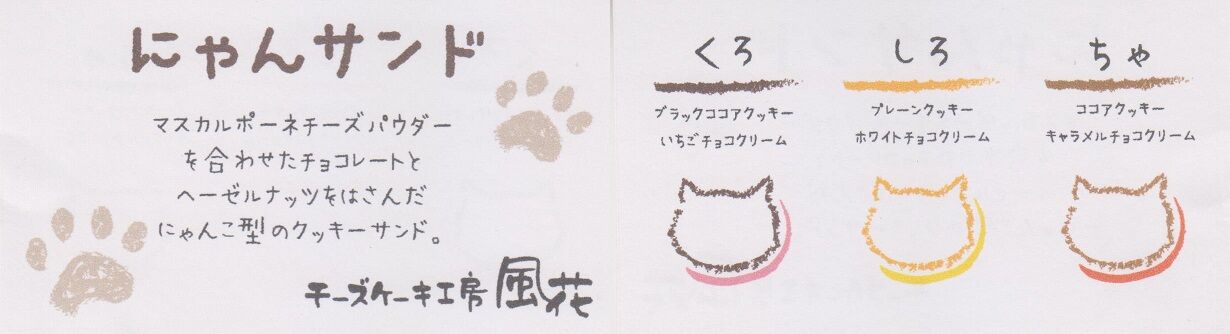 にゃんサンド
マスカルポーネチーズパウダー
を合わせたチョコレートと
ヘーゼルナッツをはさんだ
にゃんこ型のクッキーサンド。
チーズケーキ工房 風花
くろ
ブラックココアクッキー
いちごチョコクリーム
しろ
プレーンクッキー
ホワイトチョコクリーム
ちゃ
ココアクッキー
キャラメルチョコクリーム